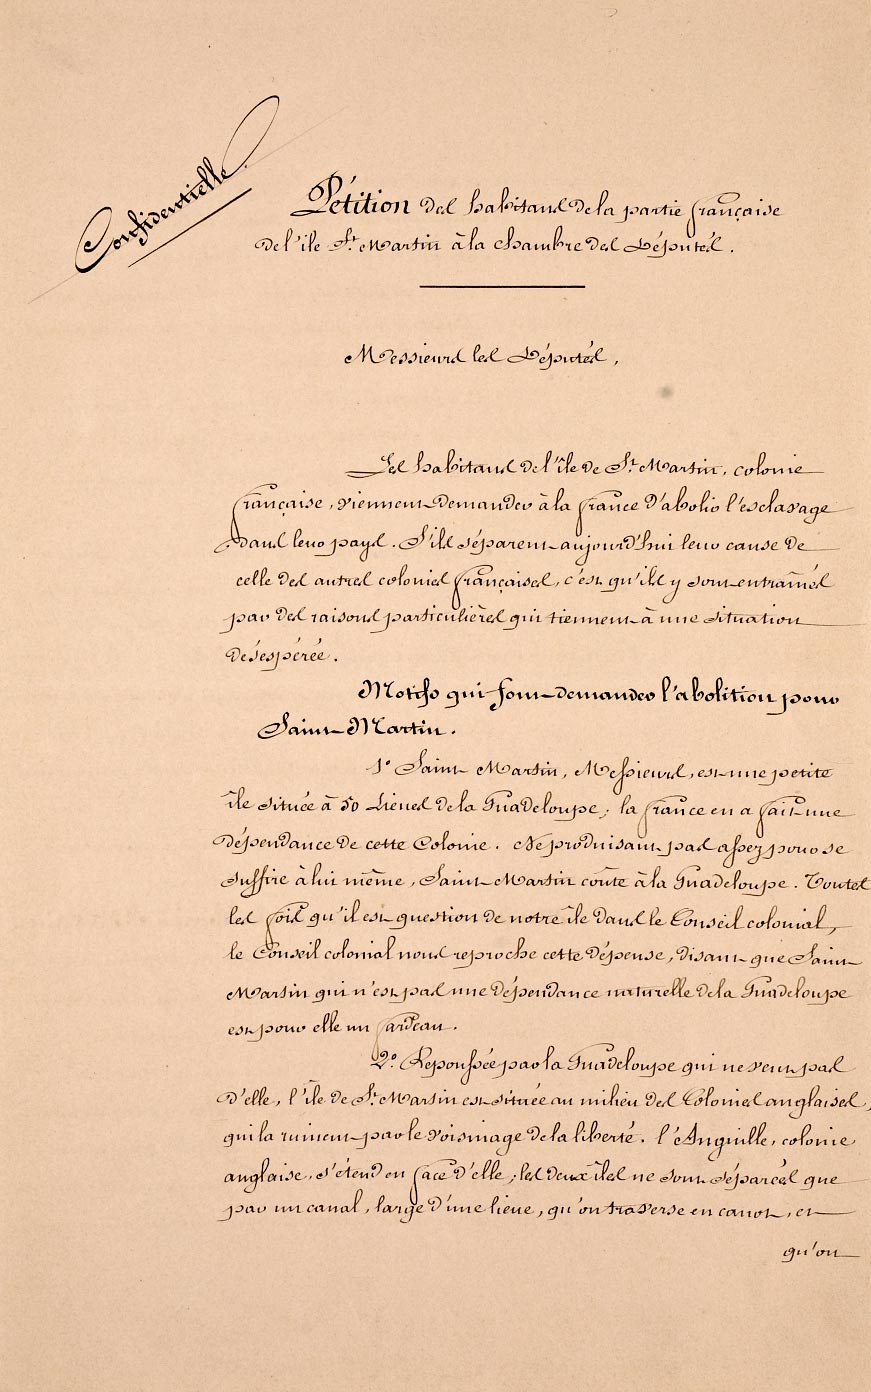 Confidentielle.
Pétition des habitans de la partie française
de l'île St. Martin à la Chambre des Députés.
Messieurs les Députés,
Les habitans de l'île de St. Martin, colonie
française, viennent demander à la france d'abolir l'esclavage
dans leur pays. S'ils séparent aujourd'hui leur cause de
celle des autres colonies françaises, c'est qu'ils y sont entraînés
par des raisons particulières qui tiennent à une situation
désespérée.
Motifs qui font demander l'abolition pour
Saint-Martin.
1º Saint Martin, Messieurs, est une petite
île située à 50 Lieues de la Guadeloupe; la france en a fait une
dépendance de cette Colonie. Ne produisant pas assez pour se
suffire à lui même, Saint-Martin coûte à la Guadeloupe. Toutes
les fois qu'il est question de notre île dans le Conseil colonial,
le Conseil colonial nous reproche cette dépense, disant que Saint
Martin qui n'est pas une dépendance naturelle de la Guadeloupe
est pour elle un fardeau.
2º Repoussée par la Guadeloupe qui ne veut pas
d'elle, l'île de St. Martin est située au milieu des Colonies anglaises,
qui la ruinent par le voisinage de la liberté. l'Anguille, colonie
anglaise, s'étend en face d'elle; les deux îles ne sont séparées que
par un canal, large d'une lieue, qu'on traverse en canot, et
qu'on